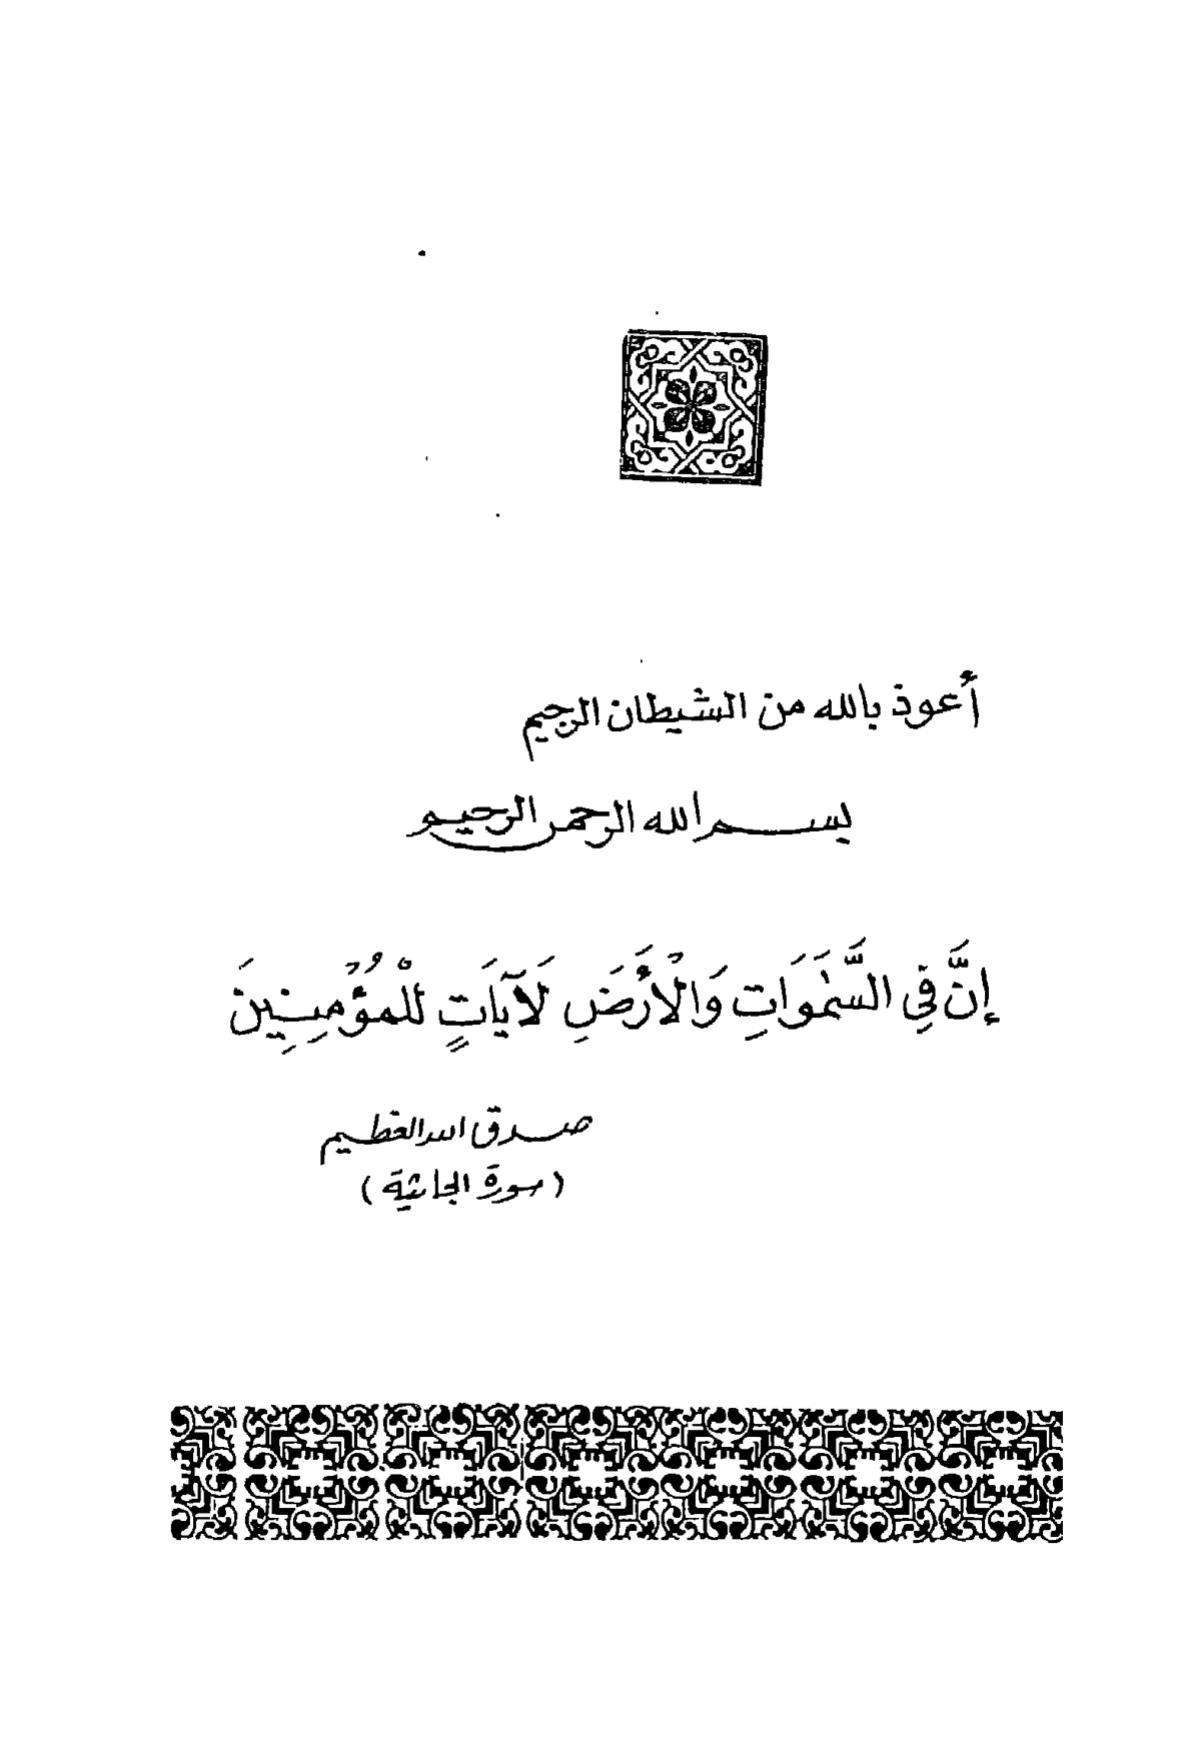 أعوذ بالله من الشيطان الرجيم
بسم الله الرحمن الرحيم
إِنَّ فِي السَّمَٰوَاتِ وَالْأَرَضِ لَآيَاتٍ لِّلْمُؤْمِنِينَ
صدق الله العظيم
(سورة الجاثية)